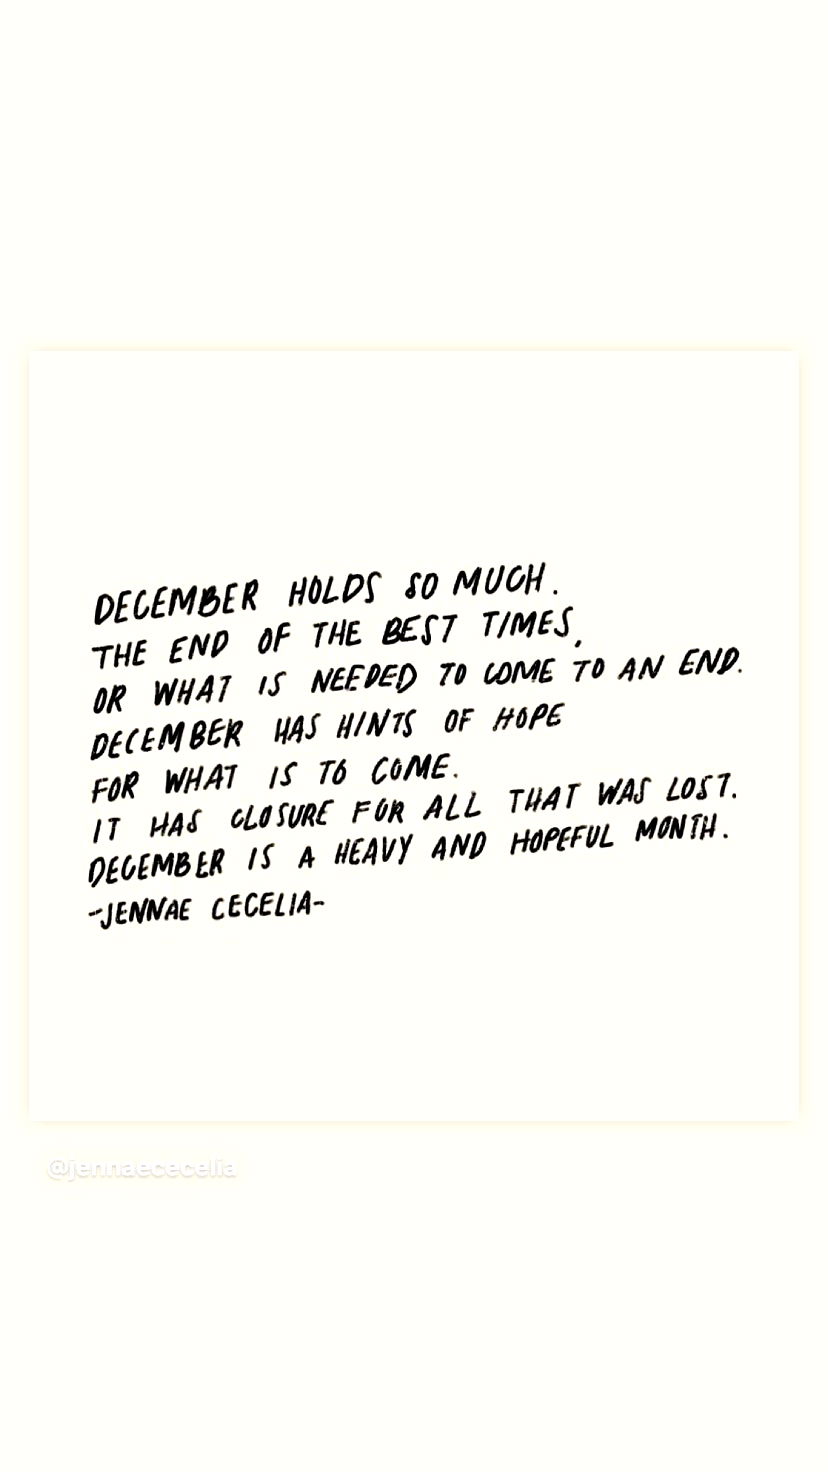 DECEMBER HOLDS SO MUCH.
THE END OF THE BEST TIMES,
OR WHAT IS NEEDED TO COME TO AN END.
DECEMBER HAS HINTS OF HOPE
FOR WHAT IS TO COME.
IT HAS CLOSURE FOR ALL THAT WAS LOST.
DECEMBER IS A HEAVY AND HOPEFUL MONTH.
-JENNAE CECELIA-
@jennaececelia